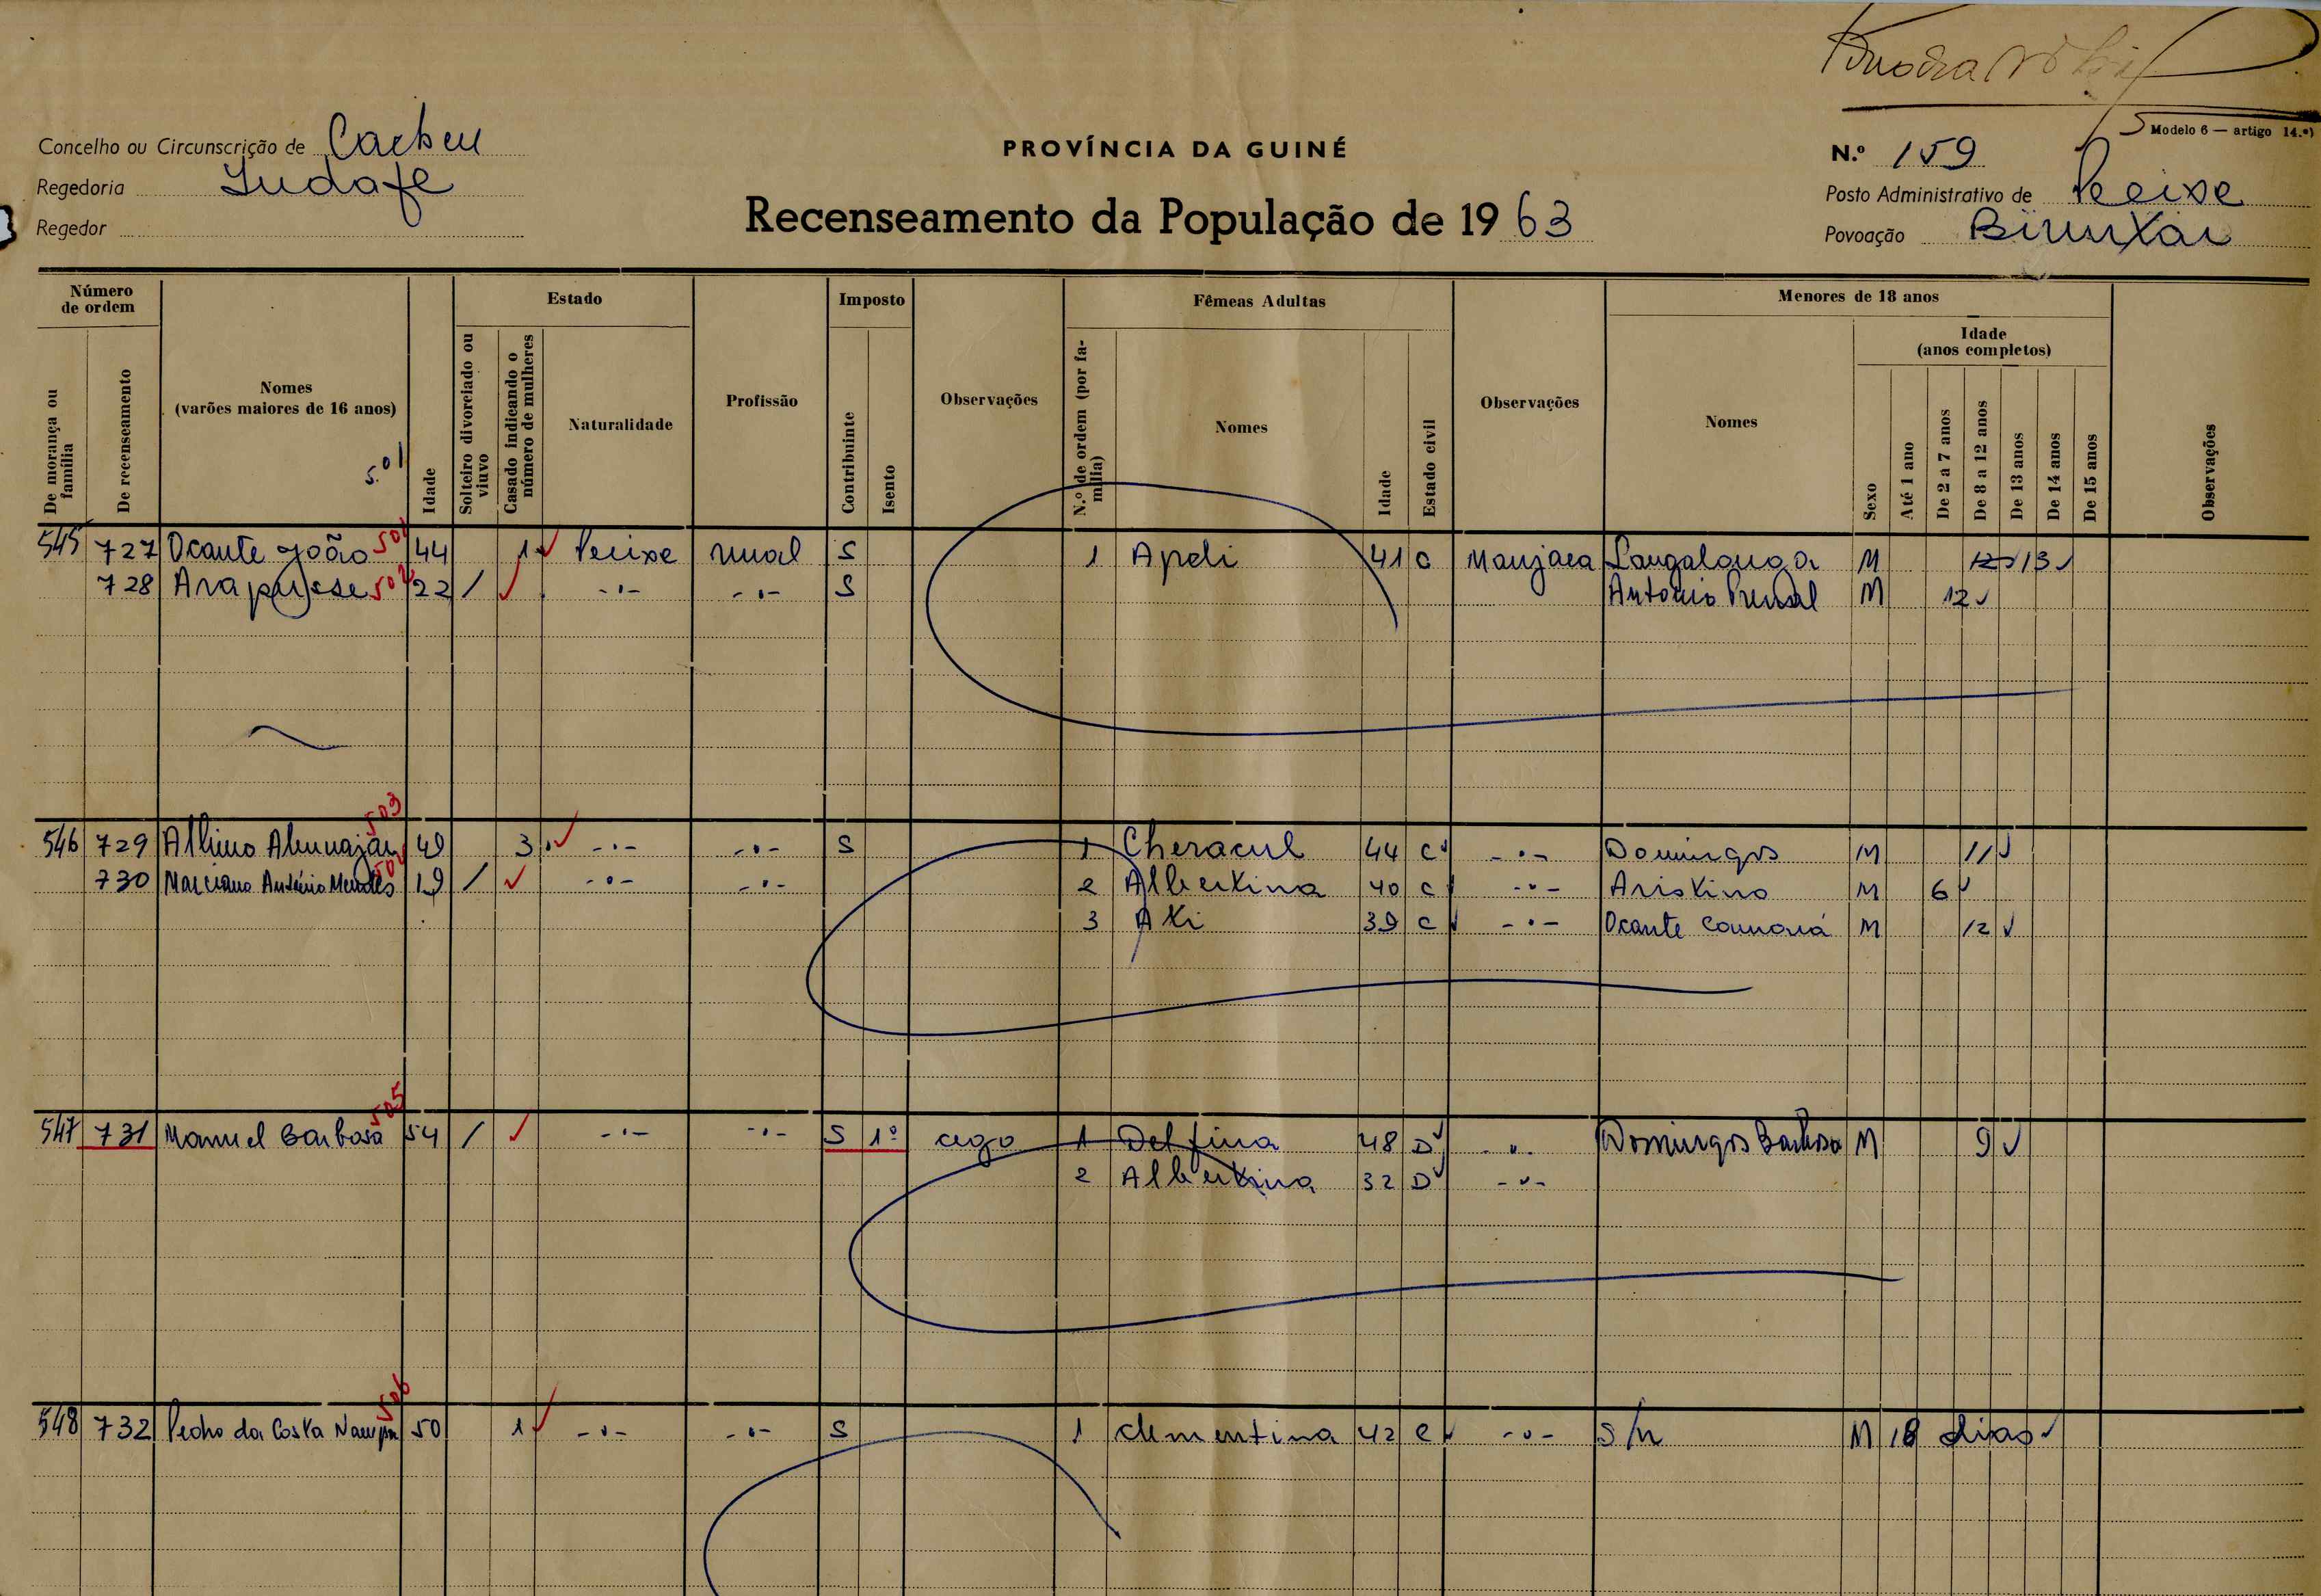 Modelo 6 — artigo 14.º)
Concelho ou Circunscrição de Cacheu
PROVÍNCIA DA GUINÉ
N.º 159
Regedoria
Posto Administrativo de Peixe
Regedor
Recenseamento da População de 1963
Povoação
Número de ordem
Estado
Imposto
Fêmeas Adultas
Menores de 18 anos
Idade (anos completos)
De morança ou família
De recenseamento
Nomes (varões maiores de 16 anos)
501
Idade
Solteiro divorciado ou viuvo
Casado indicando o número de mulheres
Naturalidade
Profissão
Contribuinte
Isento
Observações
N.º de ordem (por família)
Nomes
Idade
Estado civil
Observações
Nomes
Sexo
Até 1 ano
De 2 a 7 anos
De 8 a 12 anos
De 13 anos
De 14 anos
De 15 anos
Observações
545 727 Ocante João 501 44 1 Peixe rural S 1 Apeli 41 C Manjaca M 12 13
728 502 22 / -·- -·- S António M 12
503
546 729 49 3 -·- -·- S 1 Cheracul 44 C -·- Domingos M 11
730 Marciano António Mendes 504 19 / -·- -·- 2 Albertina 40 C -·- Aristino M 6
3 39 C -·- Ocante M 12
505
547 731 Manuel Barbosa 54 / -·- -·- S 1º cego 1 Delfina 48 D -·- Domingos Barbosa M 9
2 Albertina 32 D -·-
506
548 732 Pedro da Costa 50 1 -·- -·- S 1 Clementina 42 C -·- S/n M 18 dias